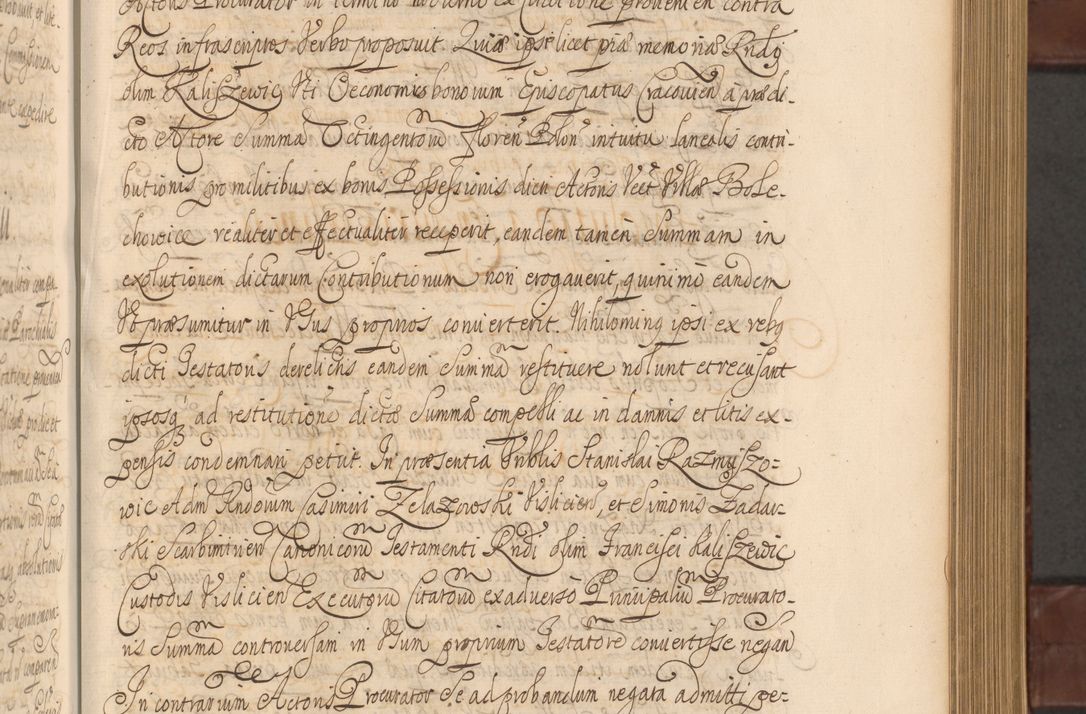 Actoris Procurator in termino moderno ex citatione provenien contra
Reos infrascriptos Verbo proposuit. Quia ipsi licet piæ memoriæ Rndq
olim Kaliszewic Uti Oeconomus bonorum Episcopatus Cracovien a prædi-
cto Actore Summa Octingentorū Floren Polon intuitu lanealis contri-
butionis pro militibus ex bonis Possessionis dicti Actoris Vect Villæ Bole-
chowice realiter et effectualiter receperit, eandem tamen Summam in
exolutionem dictarum Contributionum non erogaverit, quinimo eandem
Ut præsumitur in Usus proprios converterit. Nihilominq ipsi ex rebq
dicti Testatoris derelictis eandem Summā restituere nolunt et recusant
ipsosq ad restitutionē dictæ Summæ compelli ac in damnis et litis ex-
pensis condemnari petiit. In præsentia Nrblis Stanislai Razmyszo-
wic Adm Rndorum Casimiri Zelazowski Vislicien, et Simonis Zadar-
ski Scarbimirien Canonicorū Testamenti Rndi olim Francisci Kaliszewic
Custodis Vislicien Executorū Citatorū ex adverso Principaliū Procurato-
ris Summā controversam in Usum proprium Testatorē convertisse negan
In contrarium Actoris Procurator Se ad probandum negata admitti pe-